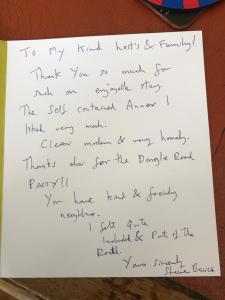 To My Kind host's & Family!
Thank You so much for
such an enjoyable stay.
The Self contained Annex I
liked very much.
Clean modern & very homely.
Thanks also for the Dongle Road
Party!!
You have kind & friendly
neighbours.
I felt Quite
Included & Part of the
Yours sincerely
Steve